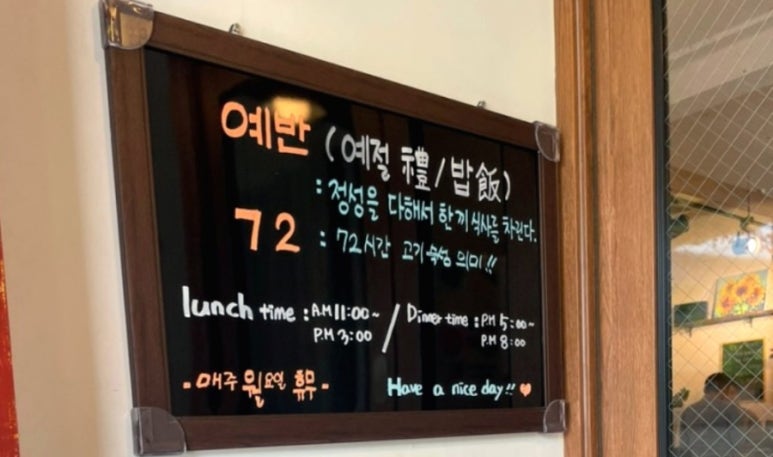 예반 (예절 禮/밥 飯)
: 정성을 다해서 한끼 식사를 차린다.
72 : 72시간 고기 숙성 의미!!
lunch time : A.M 11:00~ / Dinner time : P.M 5:00~
P.M 3:00 P.M 8:00
- 매주 월요일 휴무 - Have a nice day!!